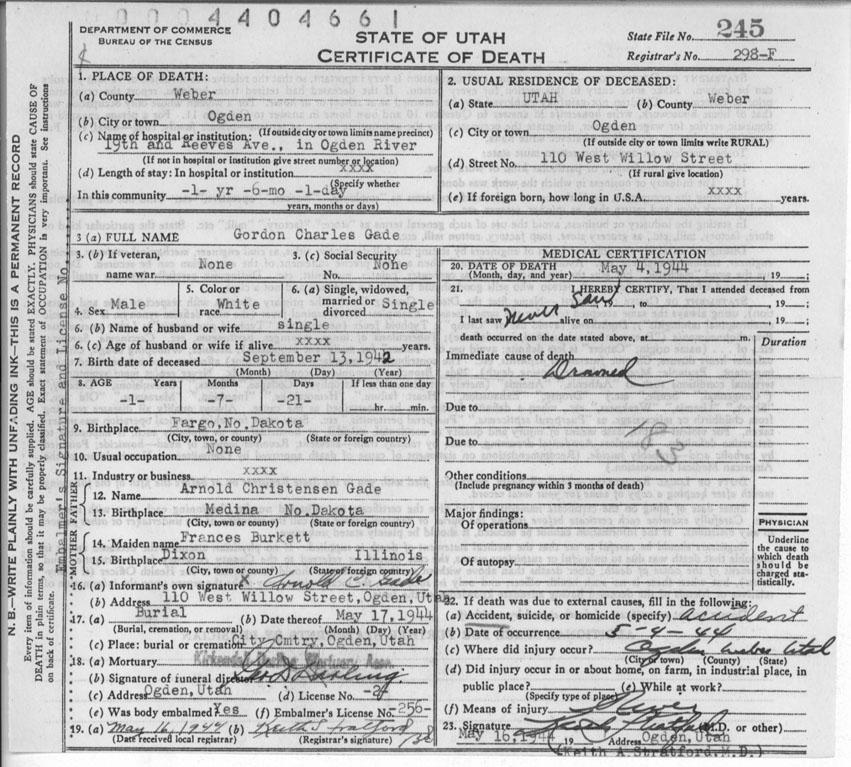 0004404661
DEPARTMENT OF COMMERCE
BUREAU OF THE CENSUS
STATE OF UTAH
CERTIFICATE OF DEATH
State File No. 245
Registrar's No. 298-F
N. B.—WRITE PLAINLY WITH UNFADING INK—THIS IS A PERMANENT RECORD
Every item of information should be carefully supplied. AGE should be stated EXACTLY. PHYSICIANS should state CAUSE OF
DEATH in plain terms, so that it may be properly classified. Exact statement of OCCUPATION is very important. See instructions
on back of certificate.
Embalmer's Signature and License No.
1. PLACE OF DEATH:
(a) County Weber
(b) City or town Ogden
(If outside city or town limits name precinct)
(c) Name of hospital or institution:
19th and Reeves Ave., in Ogden River
(If not in hospital or institution give street number or location)
(d) Length of stay: In hospital or institution xxxx
(Specify whether
In this community -1- yr -6-mo -1-day
years, months or days)
2. USUAL RESIDENCE OF DECEASED:
(a) State UTAH (b) County Weber
(c) City or town Ogden
(If outside city or town limits write RURAL)
(d) Street No. 110 West Willow Street
(If rural give location)
(e) If foreign born, how long in U.S.A. xxxx years.
3 (a) FULL NAME Gordon Charles Gade
3. (b) If veteran, name war None
3. (c) Social Security No. None
4. Sex Male
5. Color or race White
6. (a) Single, widowed, married or divorced Single
6. (b) Name of husband or wife single
6. (c) Age of husband or wife if alive xxxx years.
7. Birth date of deceased September 13, 1942
(Month) (Day) (Year)
8. AGE Years Months Days If less than one day
-1- -7- -21- hr. min.
9. Birthplace Fargo, No. Dakota
(City, town, or county) (State or foreign country)
10. Usual occupation None
11. Industry or business xxxx
FATHER
12. Name Arnold Christensen Gade
13. Birthplace Medina No. Dakota
(City, town or county) (State or foreign country)
MOTHER
14. Maiden name Frances Burkett
15. Birthplace Dixon Illinois
(City, town or county) (State or foreign country)
16. (a) Informant's own signature x Arnold C. Gade
(b) Address 110 West Willow Street, Ogden, Utah
17. (a) Burial (b) Date thereof May 17, 1944
(Burial, cremation, or removal) (Month) (Day) (Year)
(c) Place: burial or cremation City Cmtry, Ogden, Utah
18. (a) Mortuary
(b) Signature of funeral director
(c) Address Ogden, Utah (d) License No.
(e) Was body embalmed? Yes (f) Embalmer's License No. -256-
19. (a) May 16, 1944 (b) Keith S. Stratford
(Date received local registrar) (Registrar's signature) /38
MEDICAL CERTIFICATION
20. DATE OF DEATH May 4, 1944
(Month, day, and year) 19
21. I HEREBY CERTIFY, That I attended deceased from
19 , to , 19 ;
I last saw never alive on , 19 ;
death occurred on the date stated above, at m.
Duration
Immediate cause of death
Drowned
Due to
183
Due to
Other conditions
(Include pregnancy within 3 months of death)
Major findings:
Of operations
Of autopsy
PHYSICIAN
Underline
the cause to
which death
should be
charged sta-
tistically.
22. If death was due to external causes, fill in the following:
(a) Accident, suicide, or homicide (specify) accident
(b) Date of occurrence 5-4-44
(c) Where did injury occur? Ogden Weber Utah
(City or town) (County) (State)
(d) Did injury occur in or about home, on farm, in industrial place, in
public place? (e) While at work?
(Specify type of place)
(f) Means of injury
23. Signature (M.D. or other)
May 16, 1944 19 Address Ogden, Utah
(Keith A. Stratford, M.D.)